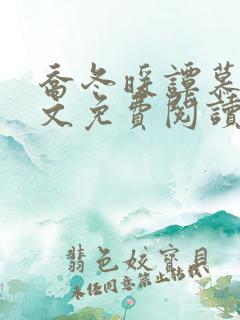 喬冬暖譚慕
文免費閱讀
翡色姣寶貝
未经同意禁止转载